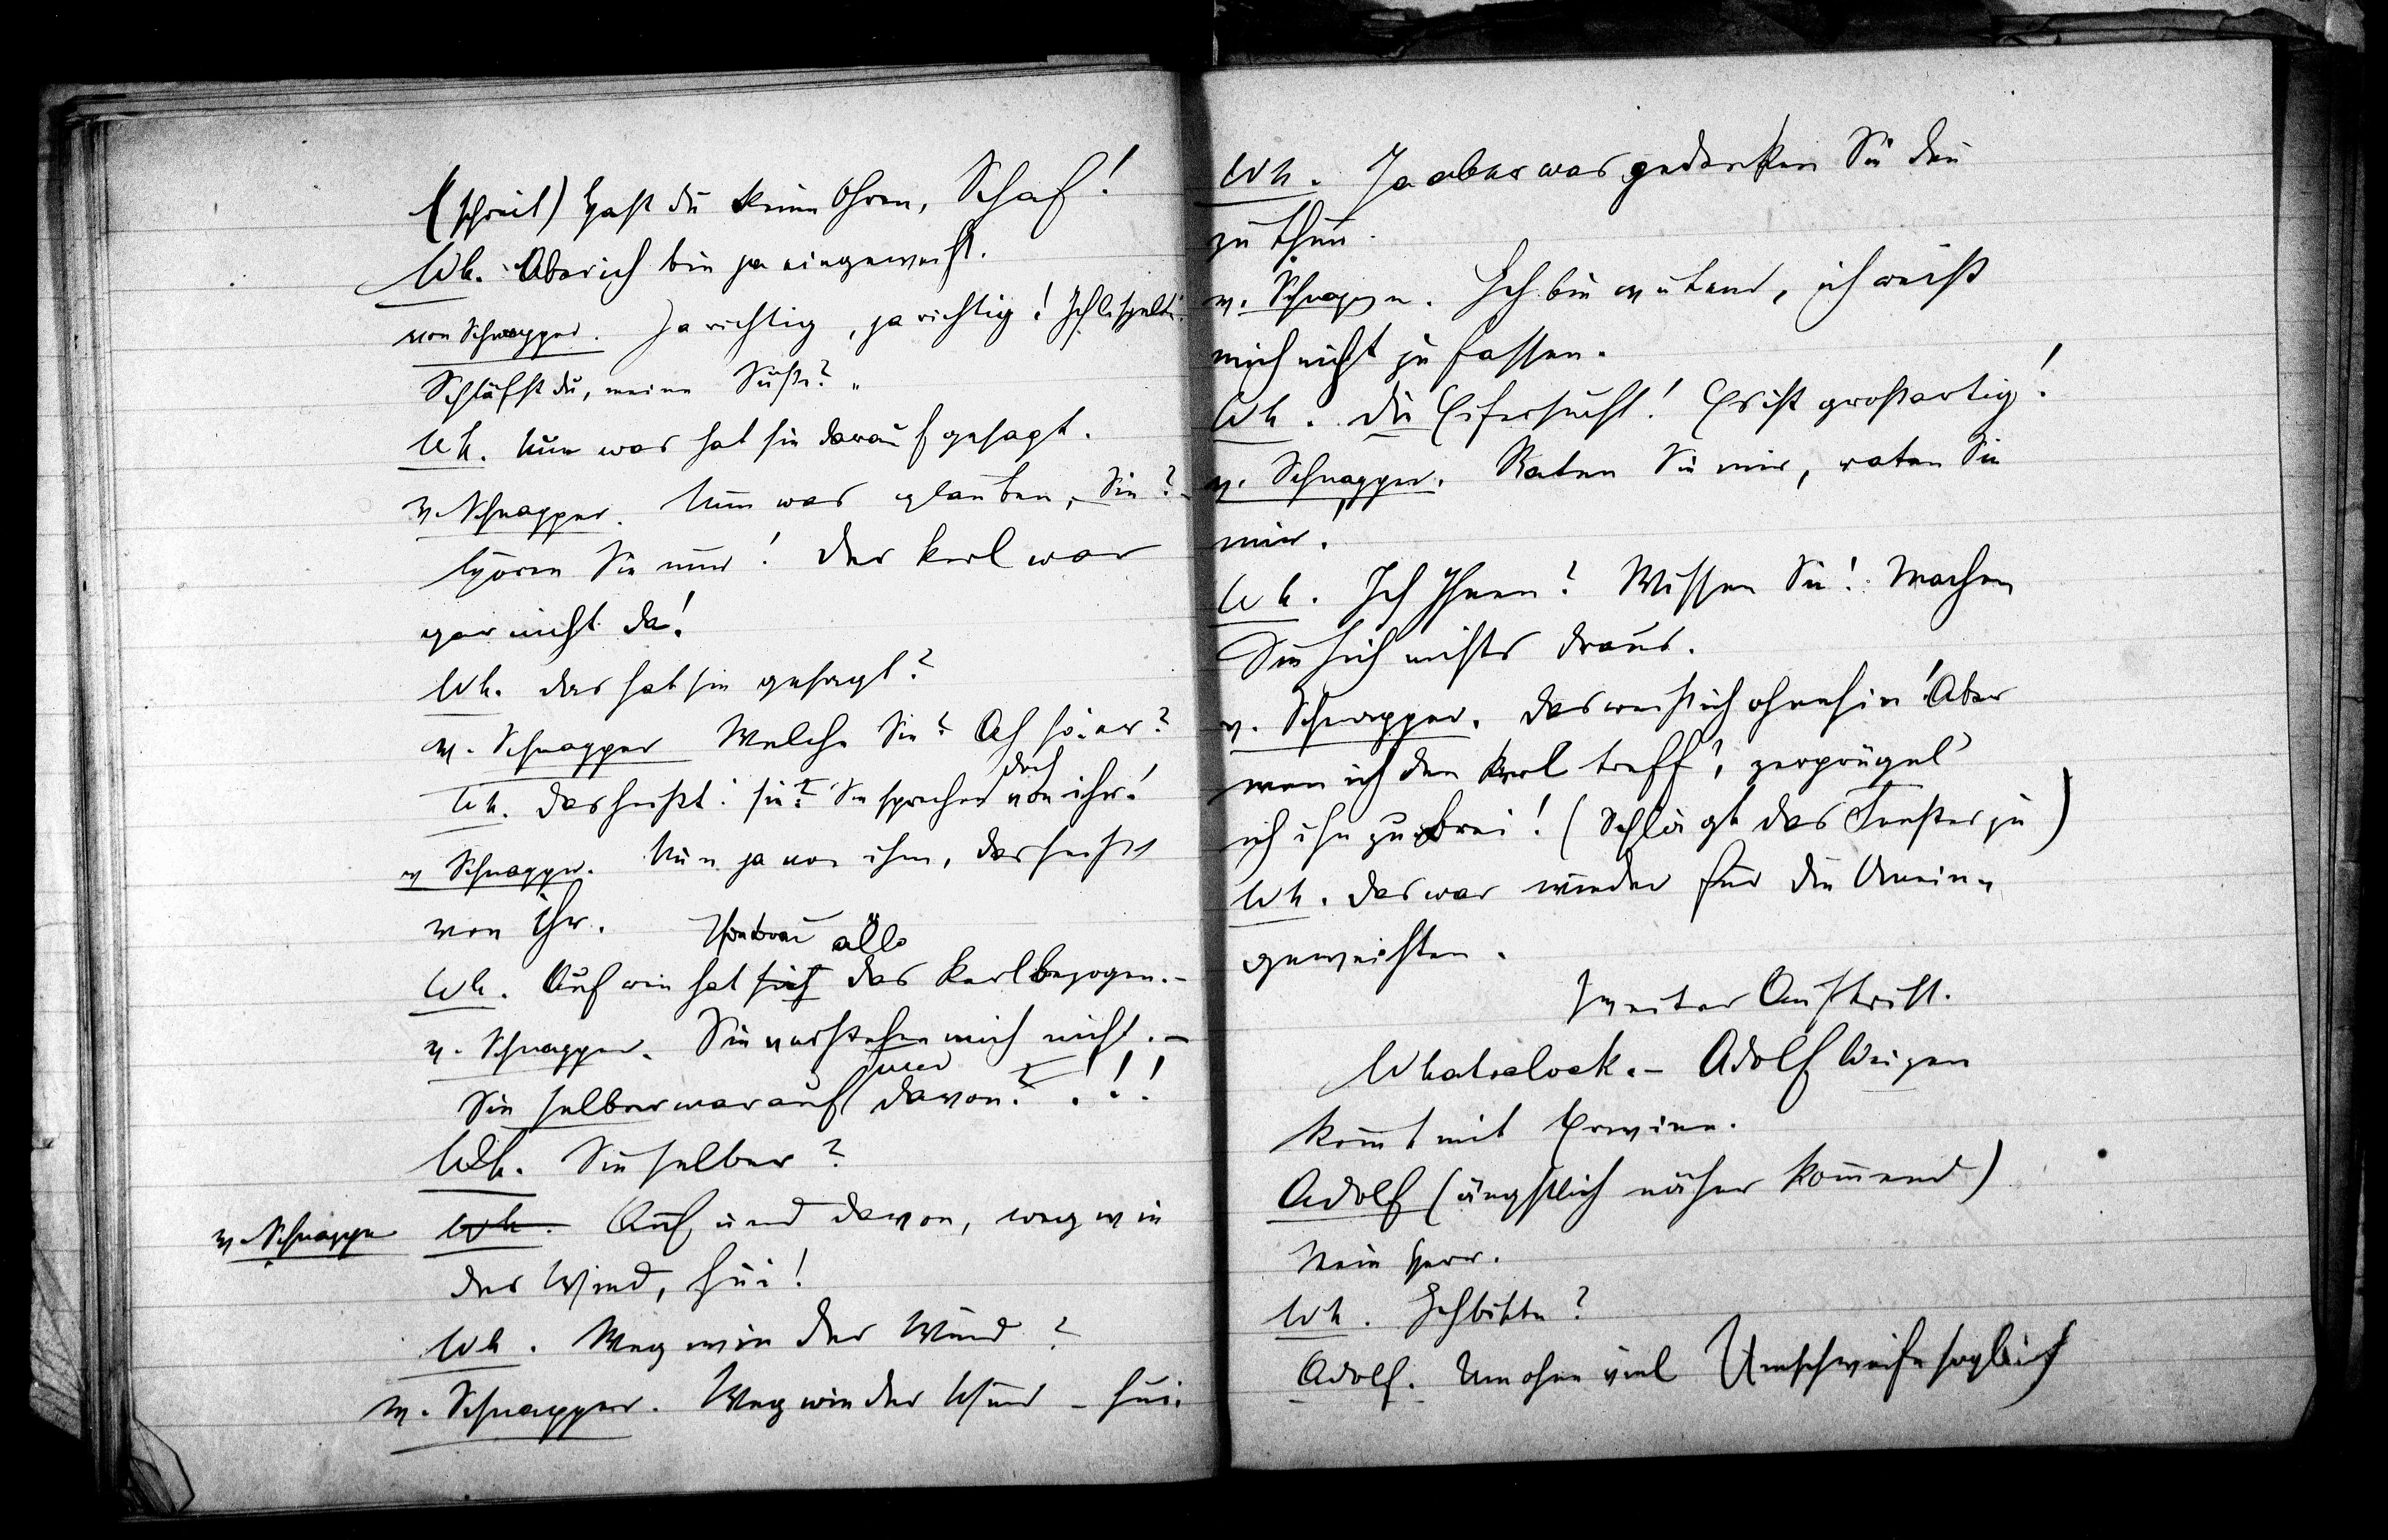 (schreit) Hast du keine Ohren, Schaf!
Wh. Aber ich bin ja eingeweiht.
von Schnapper. Ja richtig, ja richtig! Ich lispelte:
Schläfst du, meine Süße? „
Wh. Nun was hat sie darauf gesagt.
v. Schnapper. Nun was glauben, Sie? –
Hören Sie nur! Der Kerl war
gar nicht da!
Wh. Das hat sie gesagt?
v. Schnapper Welche Sie? Ach so: er?
doch
Wh. Das heißt: sie? Sie sprechen von ihr!
v Schnapper. Nun ja von ihm, das heißt
von ihr.
alle
Wh. Auf wie hat sich der Kerl bezogen. –
v. Schnapper. Sie verstehen mich nicht. –
und
Sie selber war auf davon? . ! !
Wh. Sie selber?
v. Schnapper Wh. Auf und davon, weg wie
der Wind, hui!
Wh. Weg wie der Wind?
v. Schnapper. Weg wie der Wind – hui.
Wh. Ja aber was gedenken Sie den
zu thun.
v. Schnapper. Ich bin wütend, ich weiß
mich nicht zu fassen.
Wh. Die Eifersucht! Es ist großartig!
v. Schnapper. Raten Sie mir, raten Sie
mir!
Wh. Ich Ihnen? Wissen Sie! Machen
Sie sich nichts draus.
v. Schnapper. Das weiß ich ohnehin! Aber
wen ich den Kerl treff', zerprügel'
ich ihn zu Brei! (Schlägt das Fenster zu)
Wh. Das war wieder für die Unein-
geweihten.
Zweiter Auftritt.
Whatselock. – Adolf Weizen
kom̄t mit Erwine.
Adolf (ängstlich näher kom̄end)
Mein Herr.
Wh. Ich bitte?
Adolf. Um ohne viel Umschweife sogleich